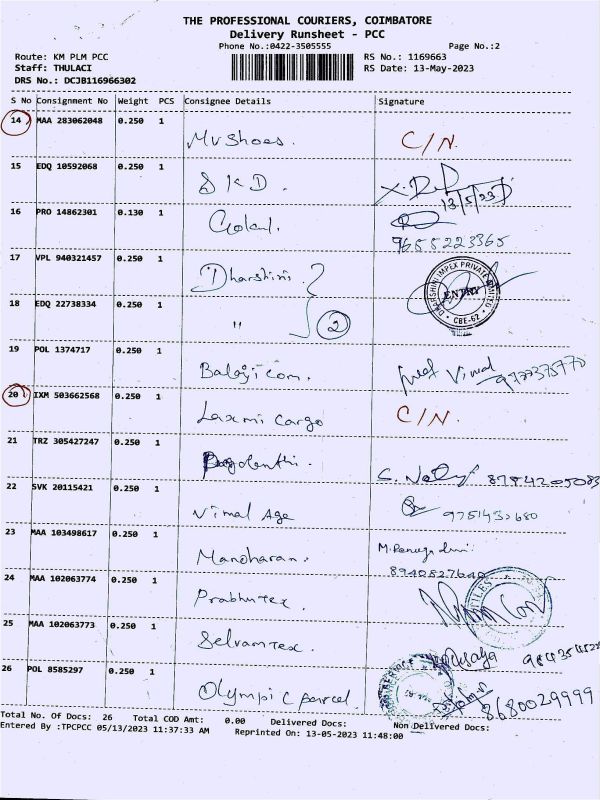 THE PROFESSIONAL COURIERS, COIMBATORE
Delivery Runsheet - PCC
Phone No.:0422-3505555 Page No.:2
Route: KM PLM PCC RS No.: 1169663
Staff: THULACI RS Date: 13-May-2023
DRS No.: DCJB116966302
S No Consignment No Weight PCS Consignee Details Signature
14 MAA 283062048 0.250 1 Mv Shoes. C/N.
15 EDQ 10592068 0.250 1 S K D. 13/5/23
16 PRO 14862301 0.130 1 9655223365
17 VPL 940321457 0.250 1 Dharshini DHARSHINI IMPEX PRIVATE LIMITED ENTRY CBE-62
18 EDQ 22738334 0.250 1 " 2
19 POL 1374717 0.250 1 Balaji com. Vimal
20 IXM 503662568 0.250 1 Laxmi cargo C/N.
21 TRZ 305427247 0.250 1 8754205083
22 SVK 20115421 0.250 1 Vimal Age
23 MAA 103498617 0.250 1 Manoharan.
24 MAA 102063774 0.250 1 Prabhu tex.
25 MAA 102063773 0.250 1 Selvam tex.
26 POL 8585297 0.250 1 Olympic parcel. 8680029999
Total No. Of Docs: 26 Total COD Amt: 0.00 Delivered Docs: Non Delivered Docs:
Entered By :TPCPCC 05/13/2023 11:37:33 AM Reprinted On: 13-05-2023 11:48:00